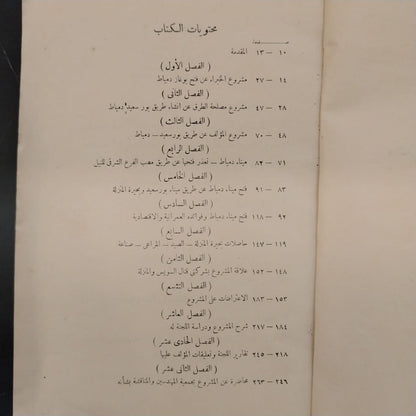 محتويات الكتاب
صفحة
١٠ — ١٣ المقدمة
( الفصل الأول )
١٤ — ٢٧ مشروع الخبراء عن فتح بوغاز دمياط
( الفصل الثانى )
٢٨ — ٤٧ مشروع مصلحة الطرق عن انشاء طريق بور سعيد دمياط
( الفصل الثالث )
٤٨ — ٧٠ مشروع المؤلف عن طريق بورسعيد — دمياط
( الفصل الرابع )
٧١ — ٨٢ ميناء دمياط — تعذر فتحها عن طريق مصب الفرع الشرقى للنيل
( الفصل الخامس )
٨٣ — ٩١ فتح ميناء دمياط عن طريق ميناء بور سعيد وبحيرة المنزلة
( الفصل السادس )
٩٢ — ١١٨ فتح ميناء دمياط وفوائده العمرانية والاقتصادية
( الفصل السابع )
١١٩ — ١٤٧ حاصلات بحيرة المنزلة — الصيد — المراعى — صناعة
( الفصل الثامن )
١٤٨ — ١٥٢ علاقة المشروع بشركتى قنال السويس والمنزلة
( الفصل التسع )
١٥٣ — ١٨٣ الاعتراضات على المشروع
( الفصل العاشر )
١٨٤ — ٢١٧ شرح المشروع ودراسة اللجنة له
( الفصل الحادى عشر )
٢١٨ — ٢٤٥ تقارير اللجنة وتعليقات المؤلف عليها
( الفصل الثانى عشر )
٢٤٦ — ٢٦٣ محاضرة عن المشروع بجمعية المهندسين والمناقشة بشأنه